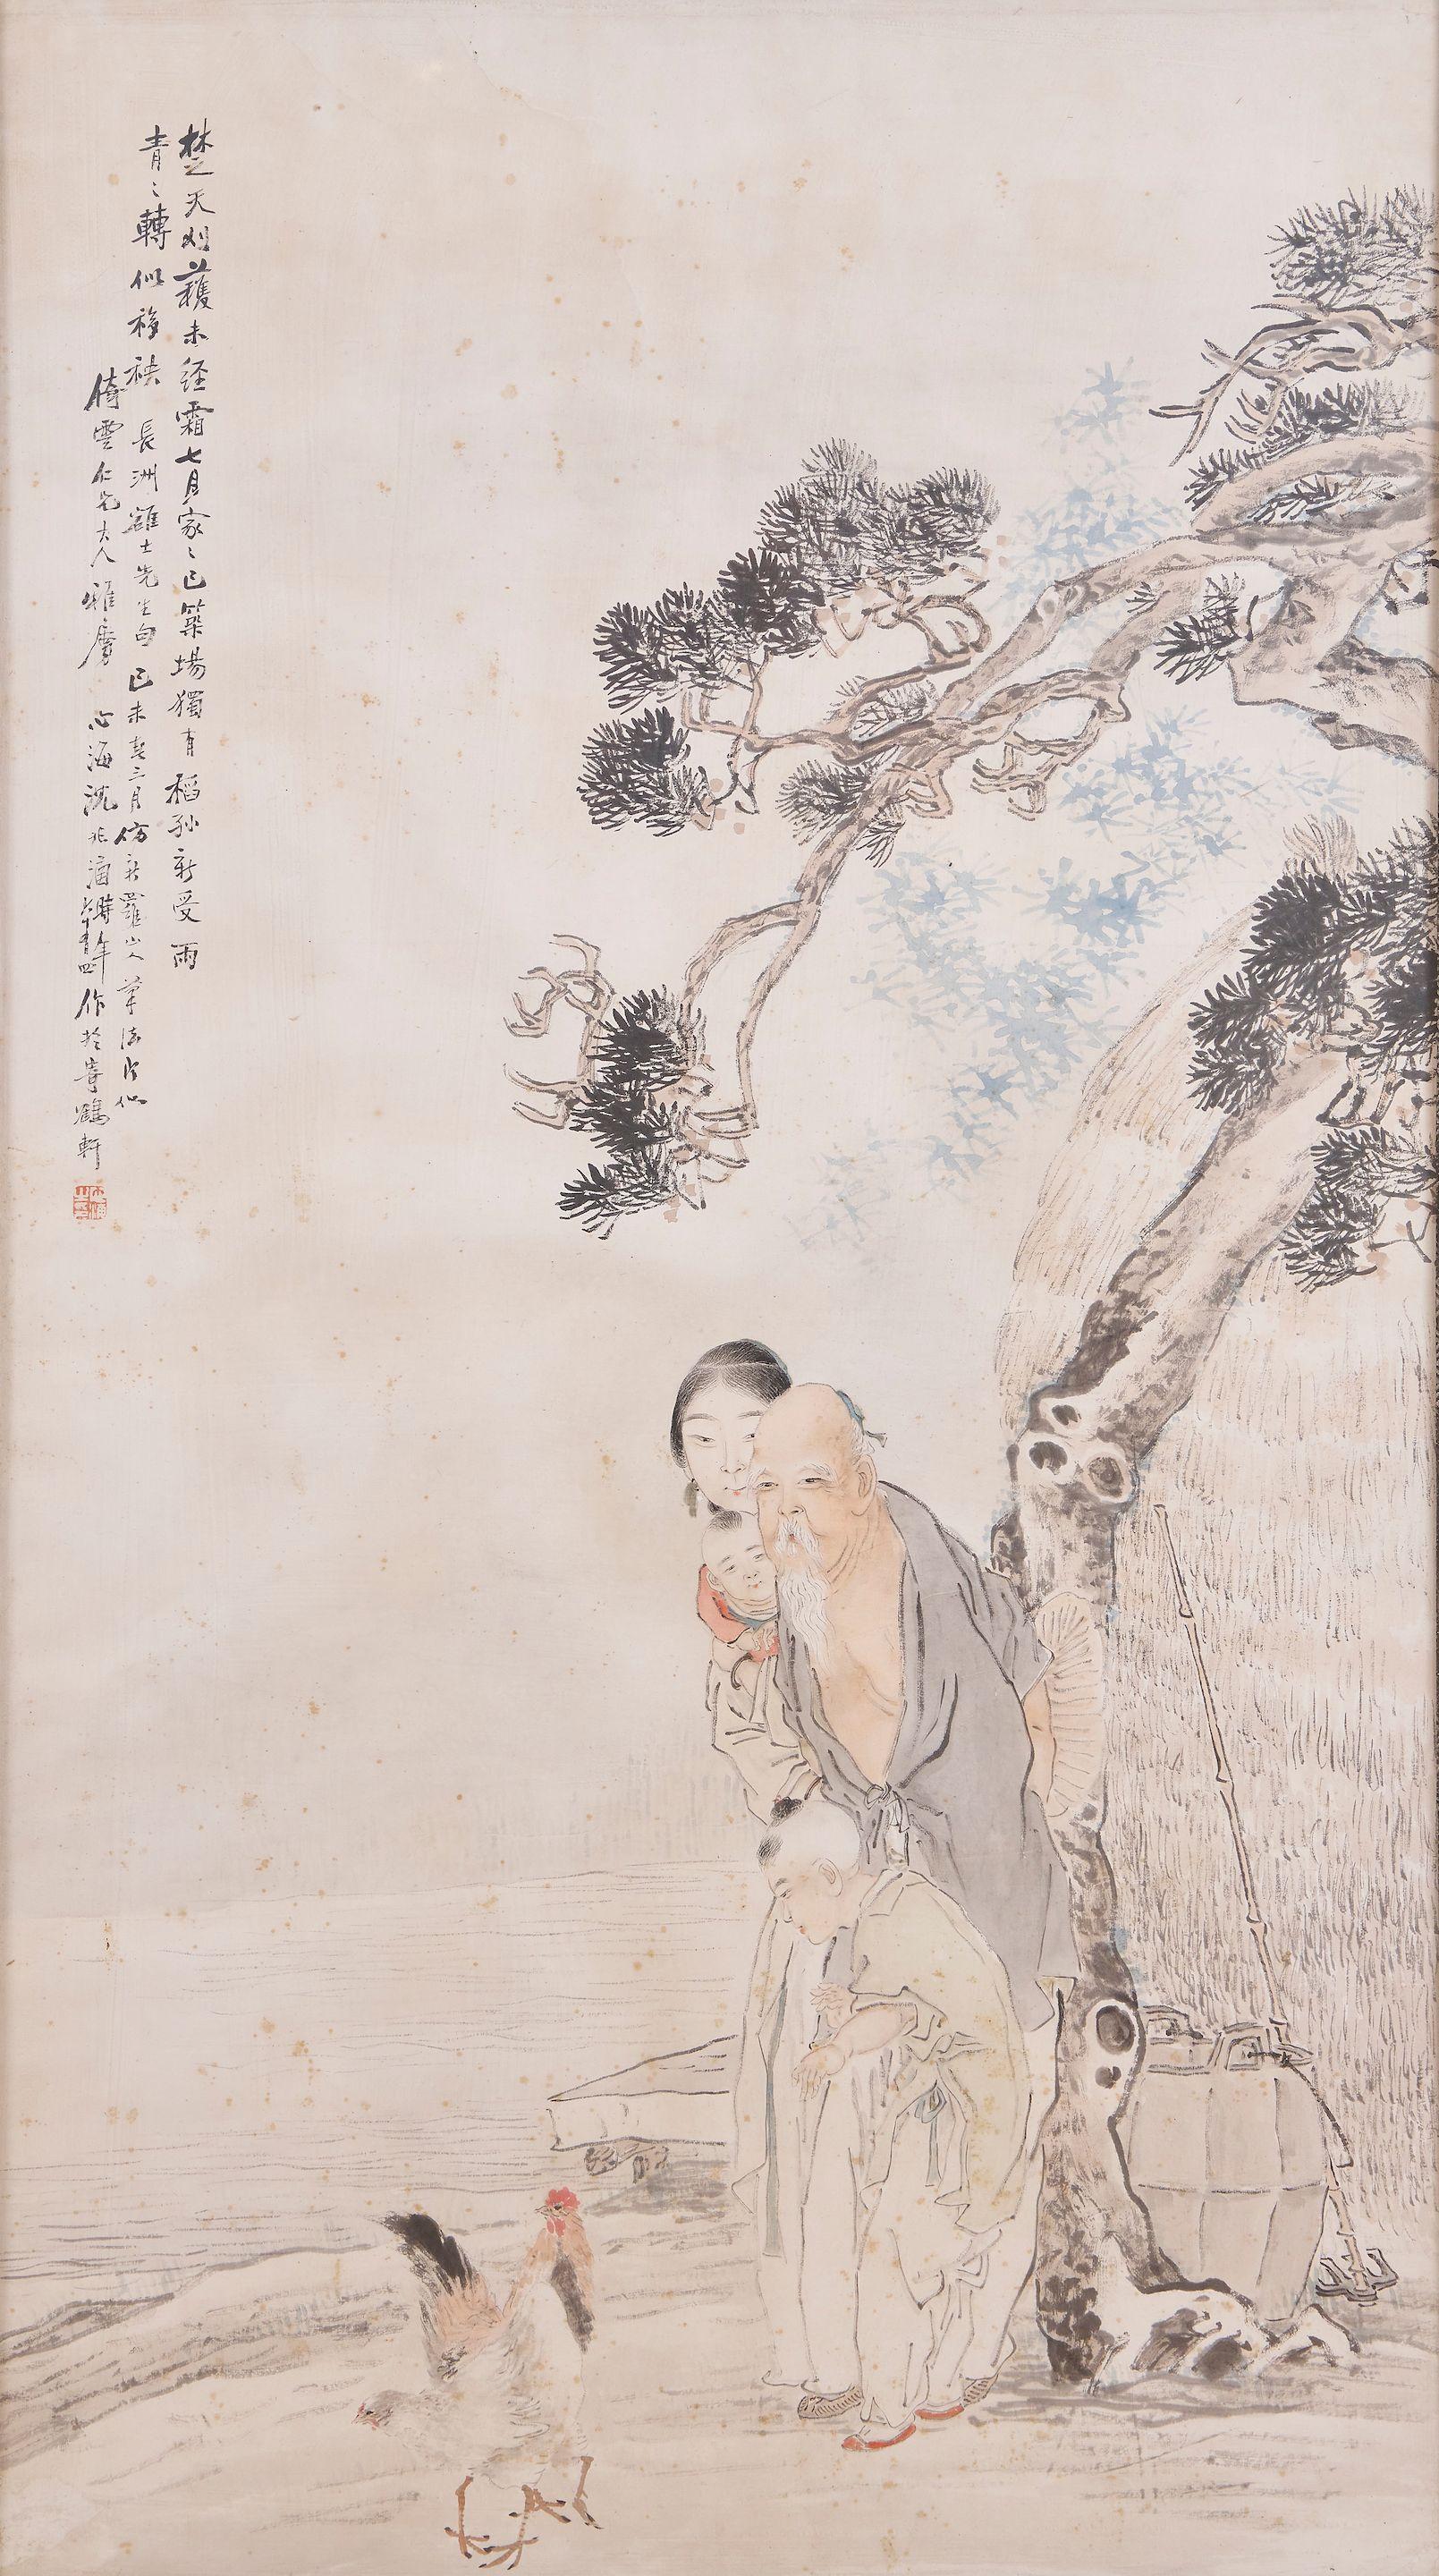 楚天刈穫未経霜七月家〻已築場獨有稻孫新受雨
青〻轉似移秧　長洲雒士先生句　己未春三月仿新羅山人筆法以似
倚雲仁兄大人雅屬　心海沈兆涵時年四作於寄鶴軒